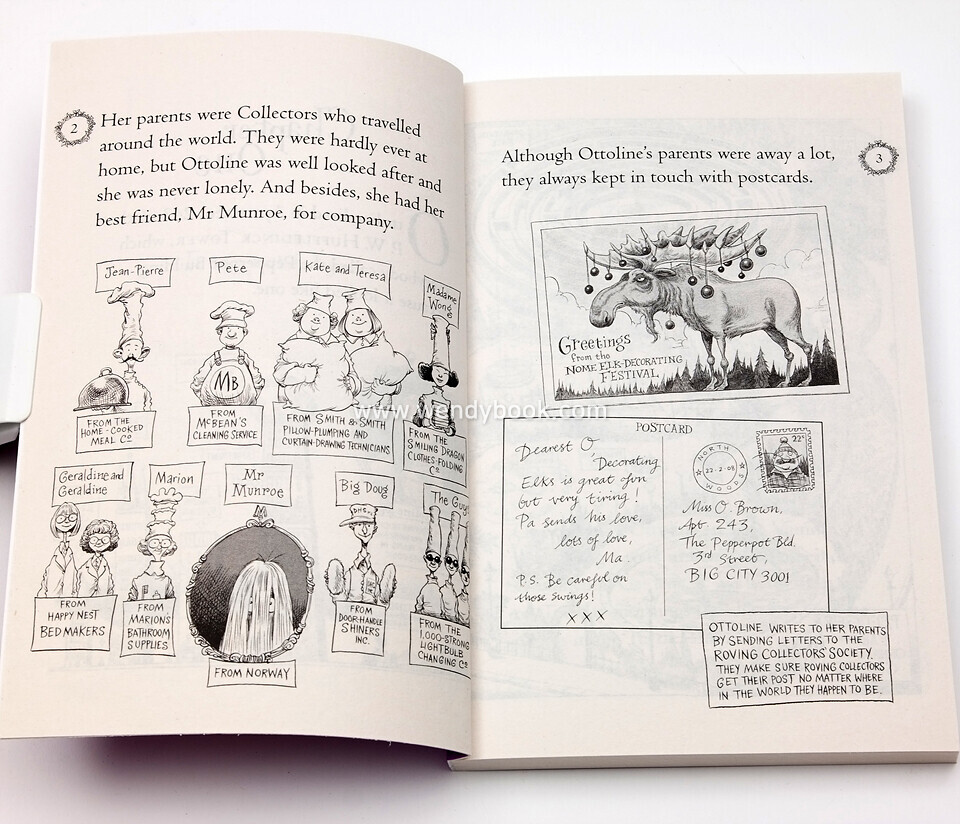 2
Her parents were Collectors who travelled
around the world. They were hardly ever at
home, but Ottoline was well looked after and
she was never lonely. And besides, she had her
best friend, Mr Munroe, for company.
Jean-Pierre
FROM THE
HOME-COOKED
MEAL CO
Pete
MB
FROM
MCBEAN'S
CLEANING SERVICE
Kate and Teresa
FROM SMITH & SMITH
PILLOW-PLUMPING AND
CURTAIN-DRAWING TECHNICIANS
Madame
Wong
FROM THE
SMILING DRAGON
CLOTHES-FOLDING
CO
Geraldine and
Geraldine
FROM
HAPPY NEST
BED MAKERS
Marion
FROM
MARION'S
BATHROOM
SUPPLIES
Mr
Munroe
M
FROM NORWAY
Big Doug
DHS
FROM
DOOR-HANDLE
SHINERS
INC.
The Guys
FROM THE
1,000-STRONG
LIGHTBULB
CHANGING CO
3
Although Ottoline's parents were away a lot,
they always kept in touch with postcards.
Greetings
from the
NOME ELK-DECORATING
FESTIVAL
POSTCARD
Dearest O,
Decorating
Elks is great fun
but very tiring!
Pa sends his love,
lots of love,
Ma.
P.S. Be careful on
those swings!
XXX
NORTH
22-2-08
WOODS
22c
Miss O. Brown,
Apt. 243,
The Pepperpot Bld.
3rd Street,
BIG CITY 3001
OTTOLINE WRITES TO HER PARENTS
BY SENDING LETTERS TO THE
ROVING COLLECTORS' SOCIETY.
THEY MAKE SURE ROVING COLLECTORS
GET THEIR POST NO MATTER WHERE
IN THE WORLD THEY HAPPEN TO BE.
www.wendybook.com